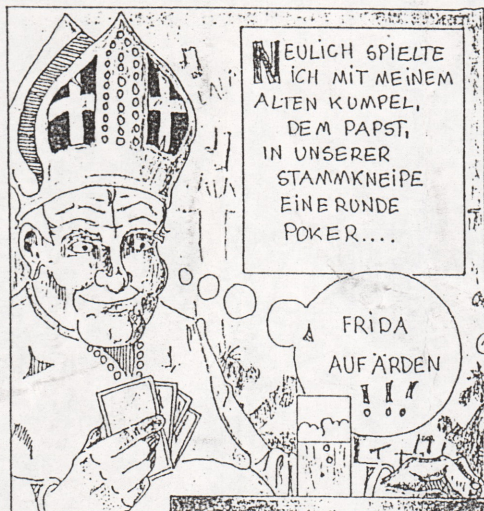 NEULICH SPIELTE
ICH MIT MEINEM
ALTEN KUMPEL,
DEM PAPST,
IN UNSERER
STAMMKNEIPE
EINE RUNDE
POKER....
FRIDA
AUF ÄRDEN
!!!